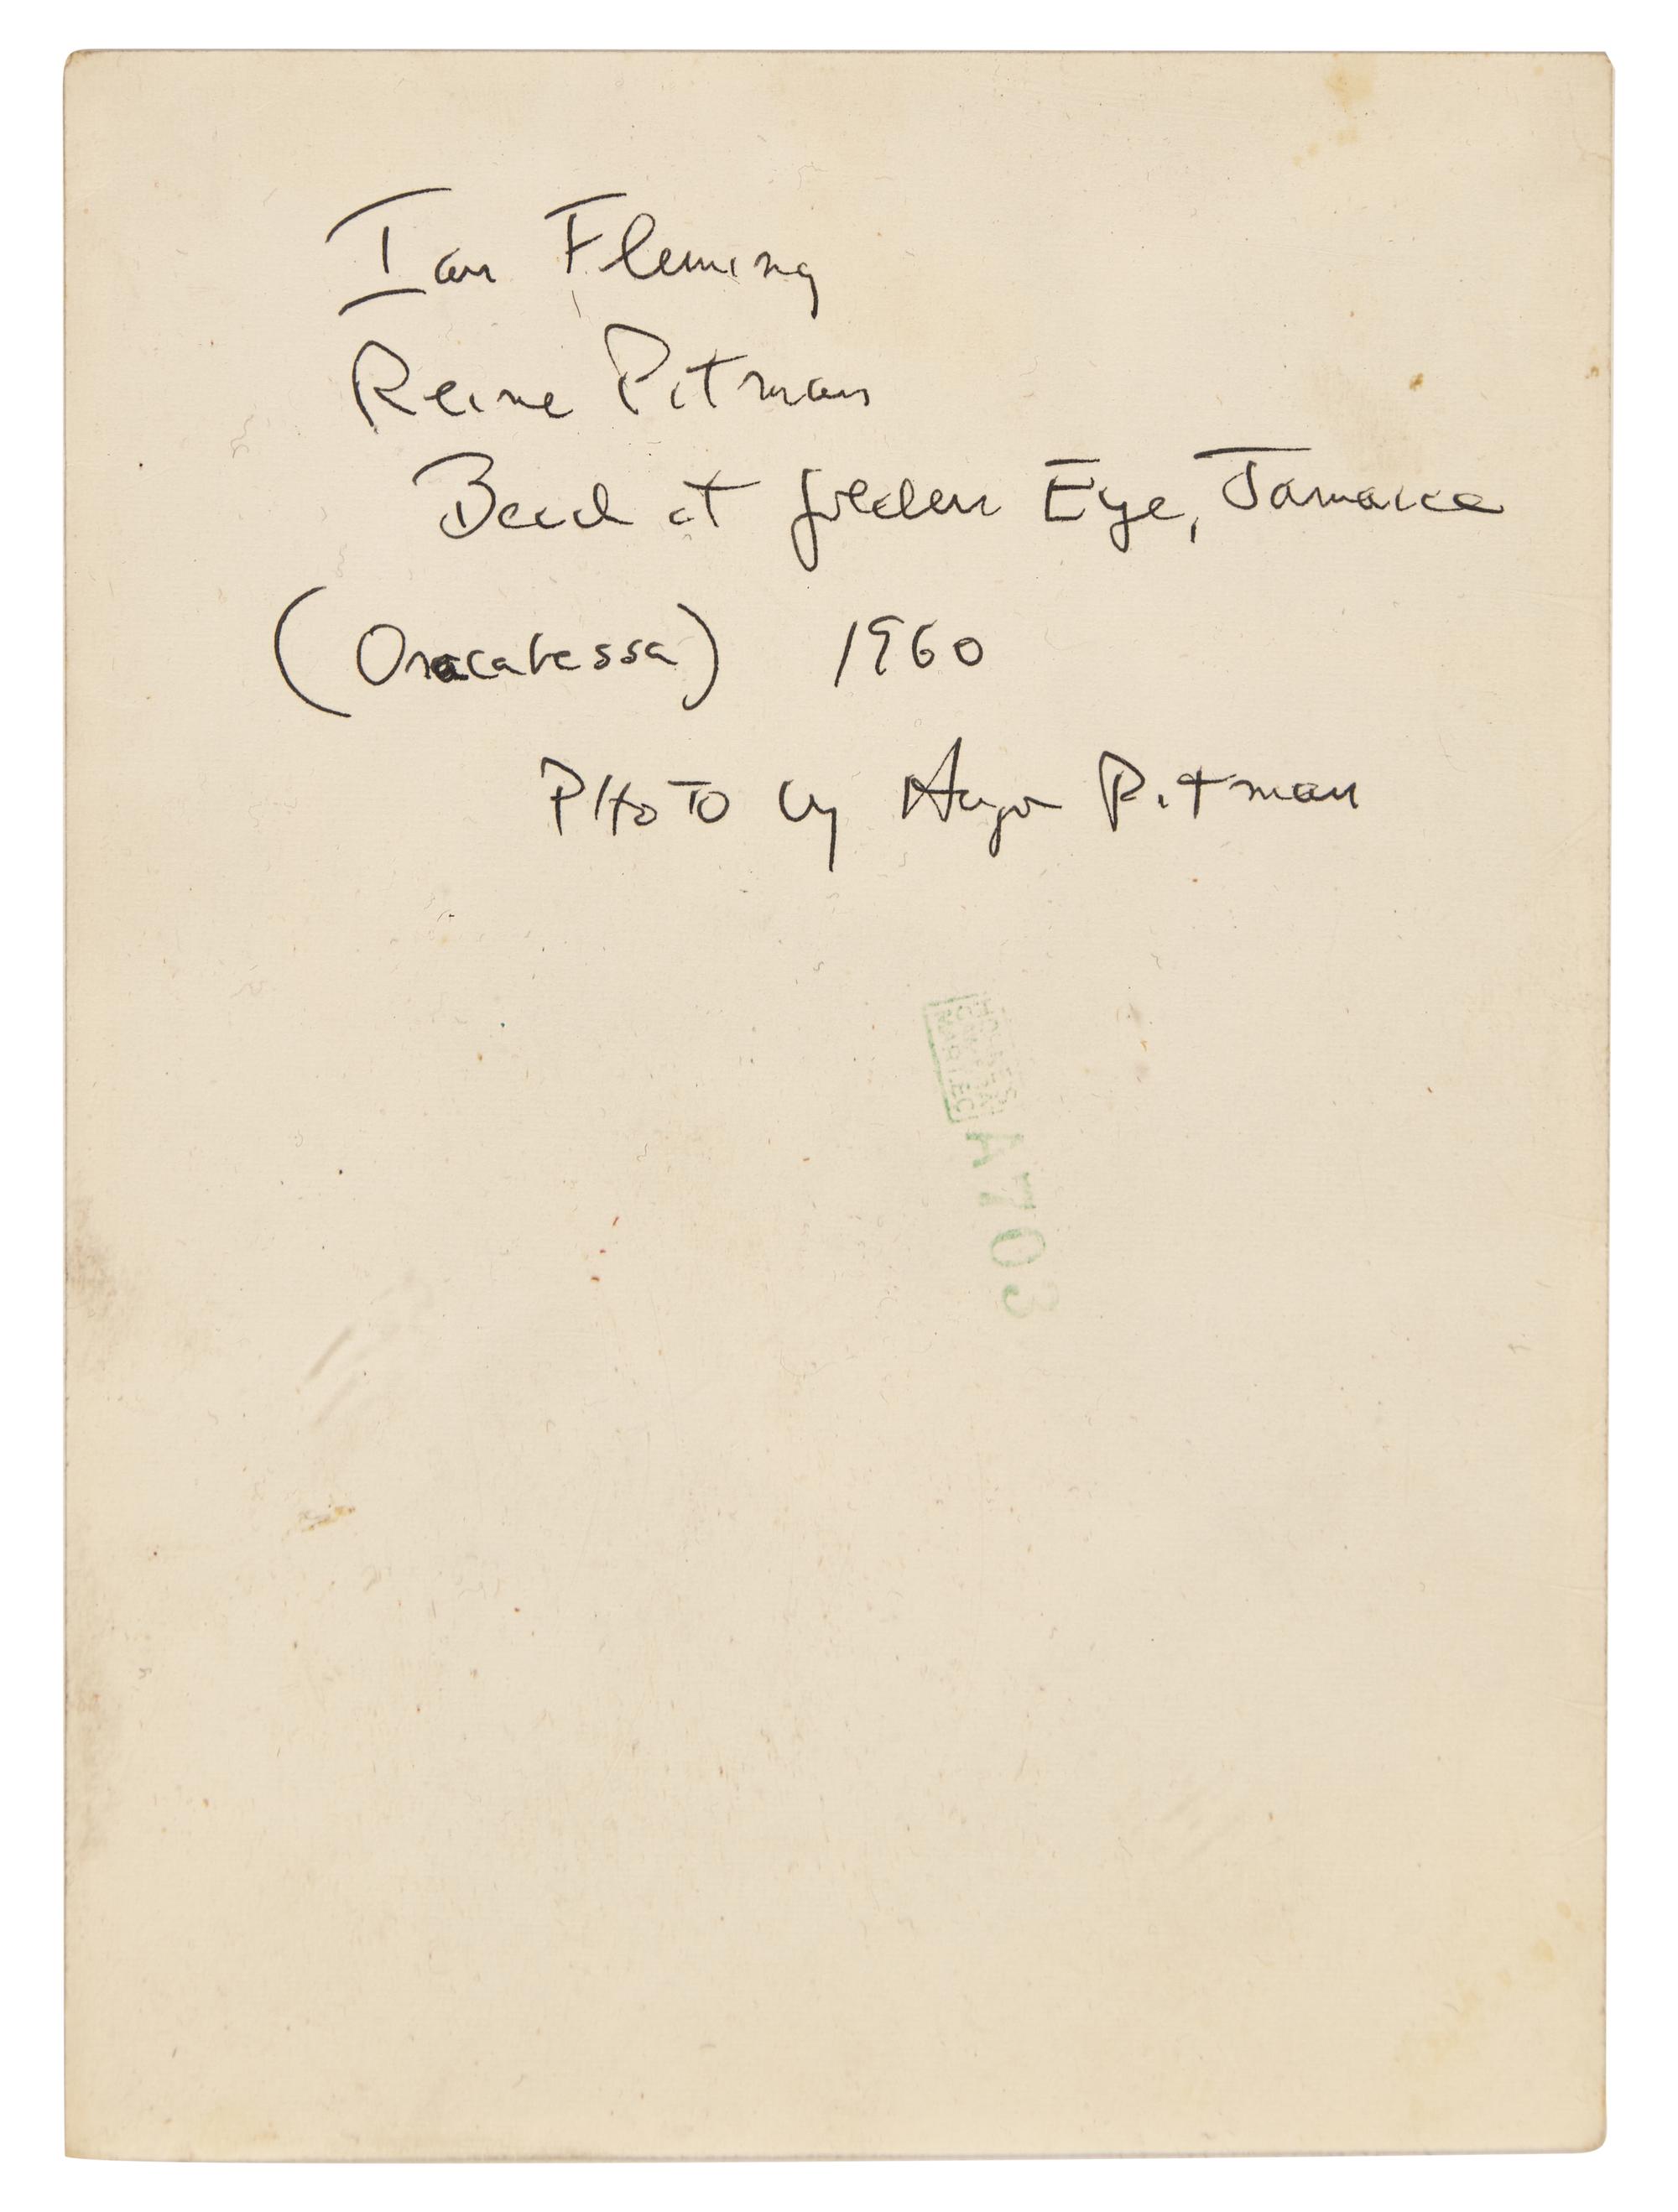 Ian Fleming
Reine Pitman
Beach at Golden Eye, Jamaica
(Oracabessa) 1960
PHOTO by Hugo Pitman
A703